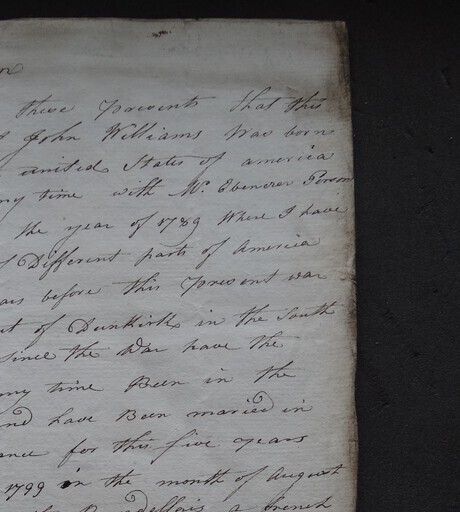 these presents that this
John Williams Was born
united States of america
my time with Mr. Ebenezer Person
the year of 1789 Where I have
Different parts of America
before this present war
of Dunkirk in the South
since the War have the
my time Been in the
have Been maried in
for this five years
1799 in the month of August
a french